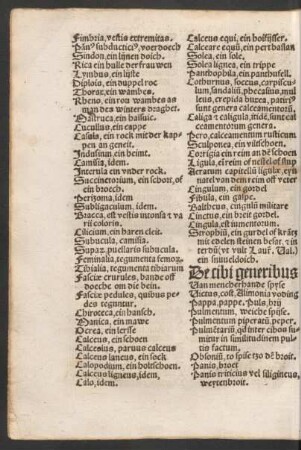 Fimbria, vestis extremitas.
subductici, voerdoech
Sindon, ein lijnen doich.
Rica ein hulle der frauwen
Lymbus, ein lijste
Diplois, ein duppel roc
Thorax, ein wambes.
Rheno, ein rou wambes as
man des winters draghet.
Mastruca, ein
Cucullus, ein cappe
Casula, ein rock mit der kap
pen an geneit.
Indusium, ein hemt.
Camisia, idem.
Interula ein vnder rock.
Succinctorium, ein schort, of
ein broech.
Perizoma, idem
Subligaculum, idem.
Bracca, est vestis vtonsa
rii coloris.
Cilicium, ein haren cleit.
Subucula, camisia.
Supar, puellaris subucula.
Feminalia, tegumenta femor
Tibialia, tegumenta tibiarum
Fascie crurules, bande off
doeche om die bein.
Fascie pedules, quibus pe
des teguntur.
Chiroteca, ein hansch.
Manica, ein mawe
Ocrea, ein lerse
Calceus, ein schoen
Calceolus, paruus calceus
Calceus laneus, ein sock
Calopodium, ein holtschoen.
Calceus ligneus, idem,
Calo, idem.
Calceus equi, ein hoffijser.
Calceare equum, ein pert
Solea, ein sole.
Solea lignea, ein trippe
Panthophila, ein panthufell.
Cothurnus, soccus, carpisculum,
sandalium, phecasium, mul
leus, crepida baxea, patris
sunt genera calceamentorum.
Caliga & caligula, itidem sunt cal
ceamentorum genera.
Pero, calceamentum rusticum
Sculponea, ein viltschoen.
Corrigia ein rein an den schoen
Ligula, eir rein of nestel of stup
Aeramen capitellum ligule, eyn
natel van den reim off veter
Cingulum, ein gordel
Fibula, ein galpe.
Baltheus, cingulum militare
Cinctus, ein breit gordel.
Cingula, est iumentorum.
Strophium, ein gurdel of
mit edelen steinen
(vt vult Laur. Val.)
ein snuueldoeck.
De cibi generibus
Van mencherhande spyse
Victus, cost, Alimonia voding
Pappa, pappe. Puls, brij
Pulmentum, weiche spise.
Pulmentum piperatum, peper,
Pulmentarium, quod inter cibos su
mitur in similitudinem pul
tis factum.
Obsonium, to spise tzo dem broit.
Panis, broet
Panis triticeus vel siligineus,
weytenbroit.